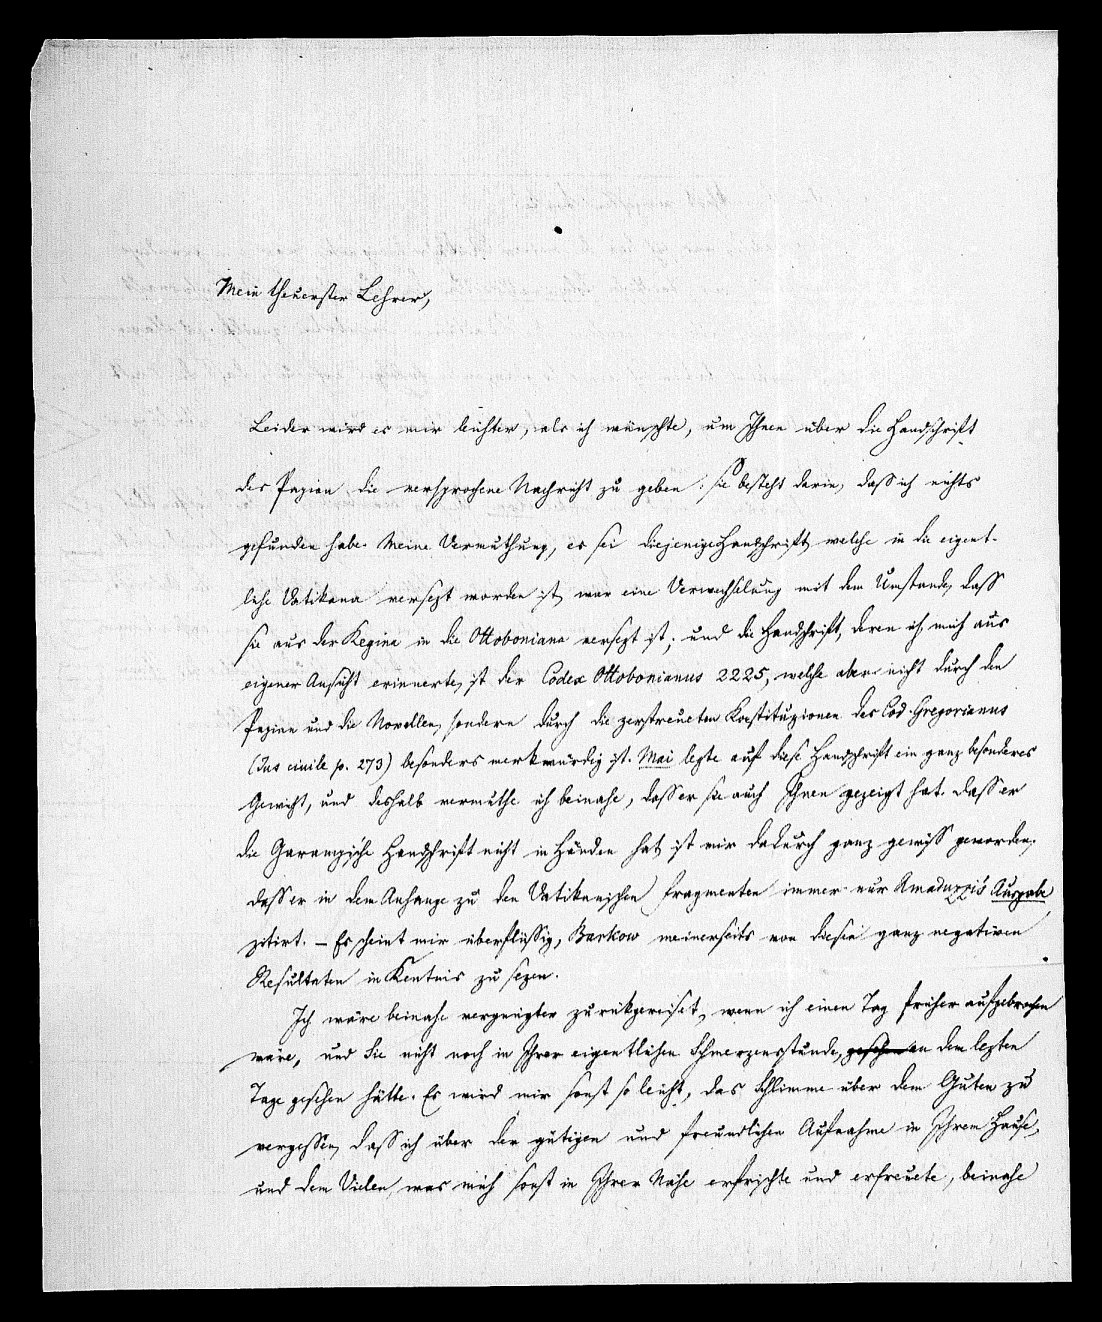 Mein theuerster Lehrer,
Leider wird es mir leichter, als ich wünschte, um Ihnen über die Handschrift
des Papian die versprochene Nachricht zu geben: sie besteht darin, daß ich nichts
gefunden habe. Meine Vermuthung, es sei diejenige Handschrift, welche in die eigent-
liche Vatikana versezt worden ist, war eine Verwechselung mit dem Umstande, daß
sie aus der Regina in die Ottoboniana versezt ist; und die Handschrift, deren ich mich aus
eigener Ansicht erinnerte, ist der Codex Ottobonianus 2225, welche aber nicht durch den
Papian und die Novellen, sondern durch die zerstreueten Konstituzionen des Cod. Gregorianus
(Jus civile p. 273) besonders merkwürdig ist. Mai legte auf diese Handschrift ein ganz besonderes
Gewicht, und deshalb vermuthe ich beinahe, daß er sie auch Ihnen gezeigt hat. Daß er
die Garampische Handschrift nicht in Händen hat, ist mir dadurch ganz gewiß geworden,
daß er in dem Anhange zu den Vatikanischen Fragmenten immer nur Amaduzzis Ausgabe
zitirt. – Es scheint mir überflüssig, Barkow meinerseits von diesen ganz negativen
Resultaten in Kentnis zu sezen.
Ich wäre beinahe vergnügter zurükgereiset, wenn ich einen Tag früher aufgebrochen
wäre, und Sie nicht noch in Ihrer eigentlichen Schmerzensstunde, an dem lezten
Tage gesehen hätte. Es wird mir sonst so leicht, das Schlimme über dem Guten zu
vergessen, daß ich über der gütigen und freundlichen Aufnahme in Ihrem Hause,
und dem Vielen, was mich sonst in Ihrer Nähe erfrischte und erfreuete, beinahe